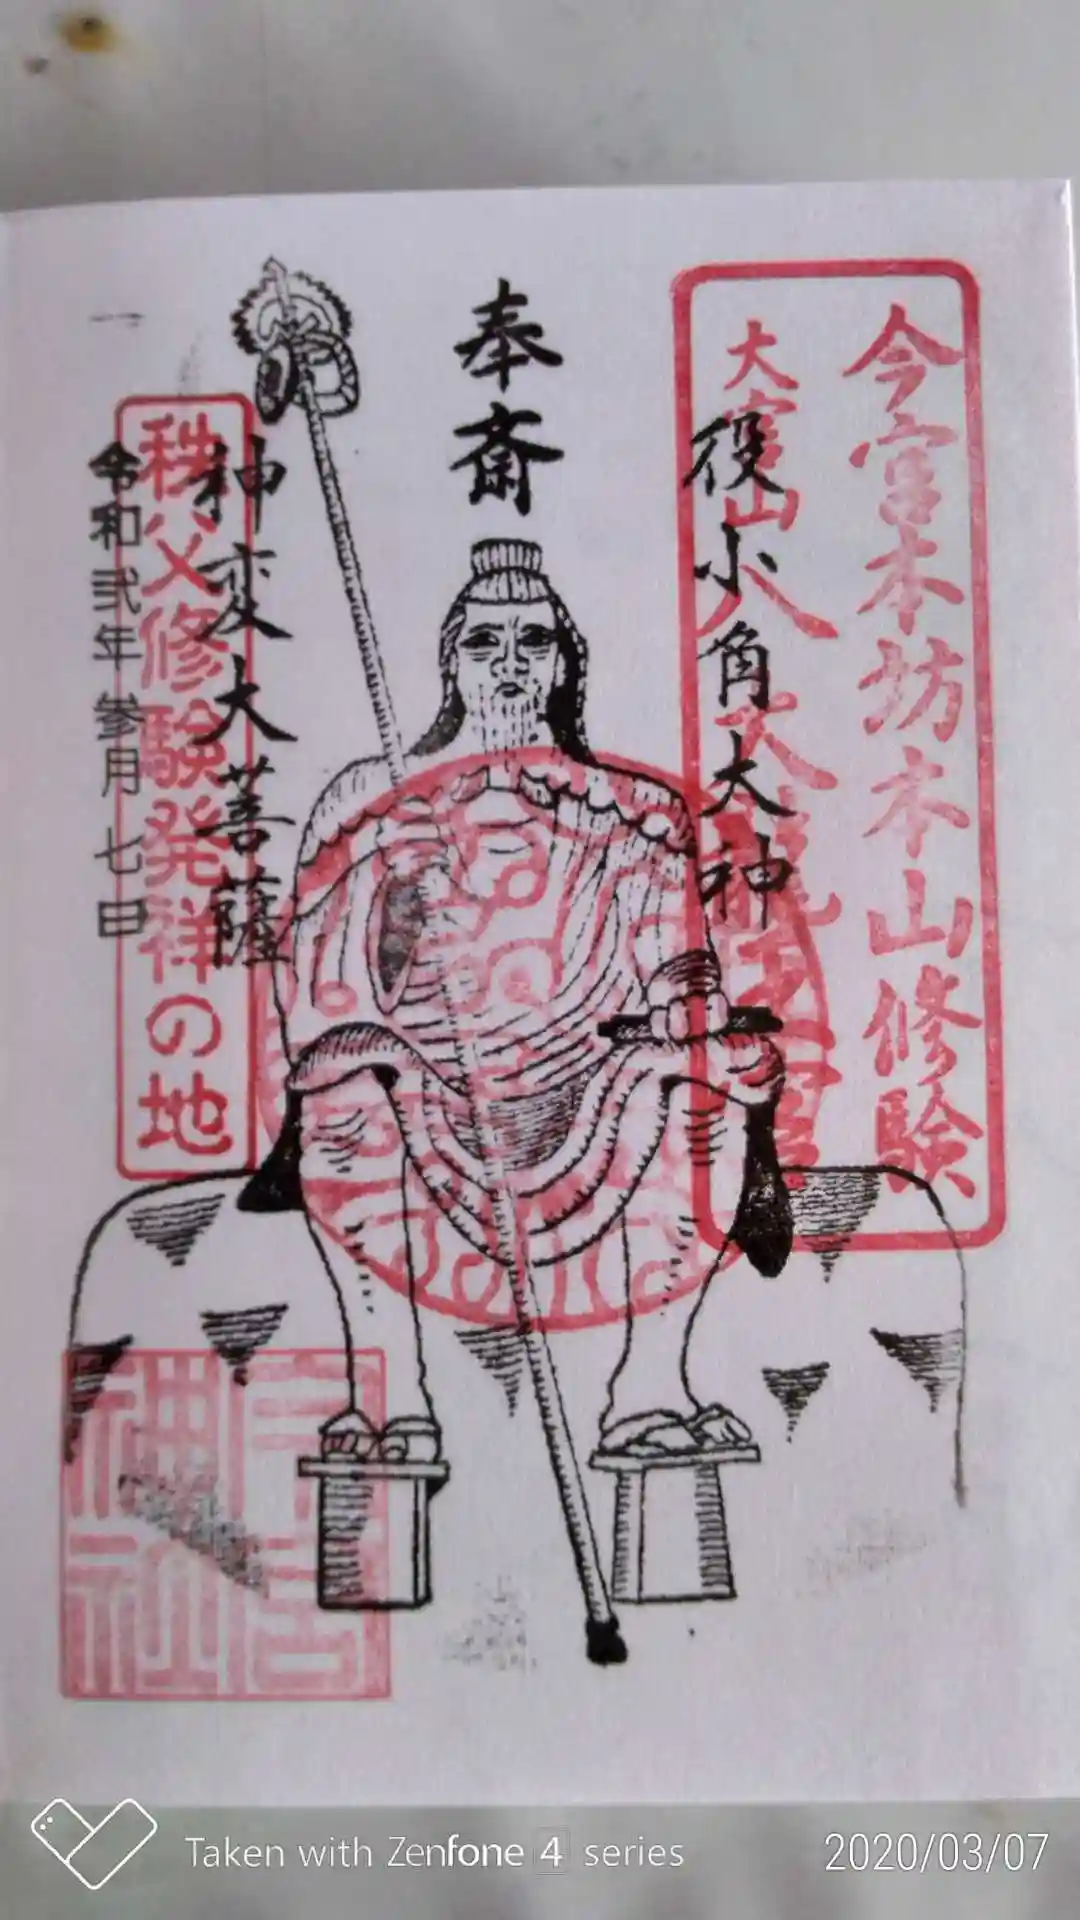 今宮本坊本山修験
大宮山
八大龍王宮
役小角大神
奉斎
神変大菩薩
秩父修験発祥の地
令和弐年参月七日
今宮
神社
Taken with Zenfone 4 series
2020/03/07